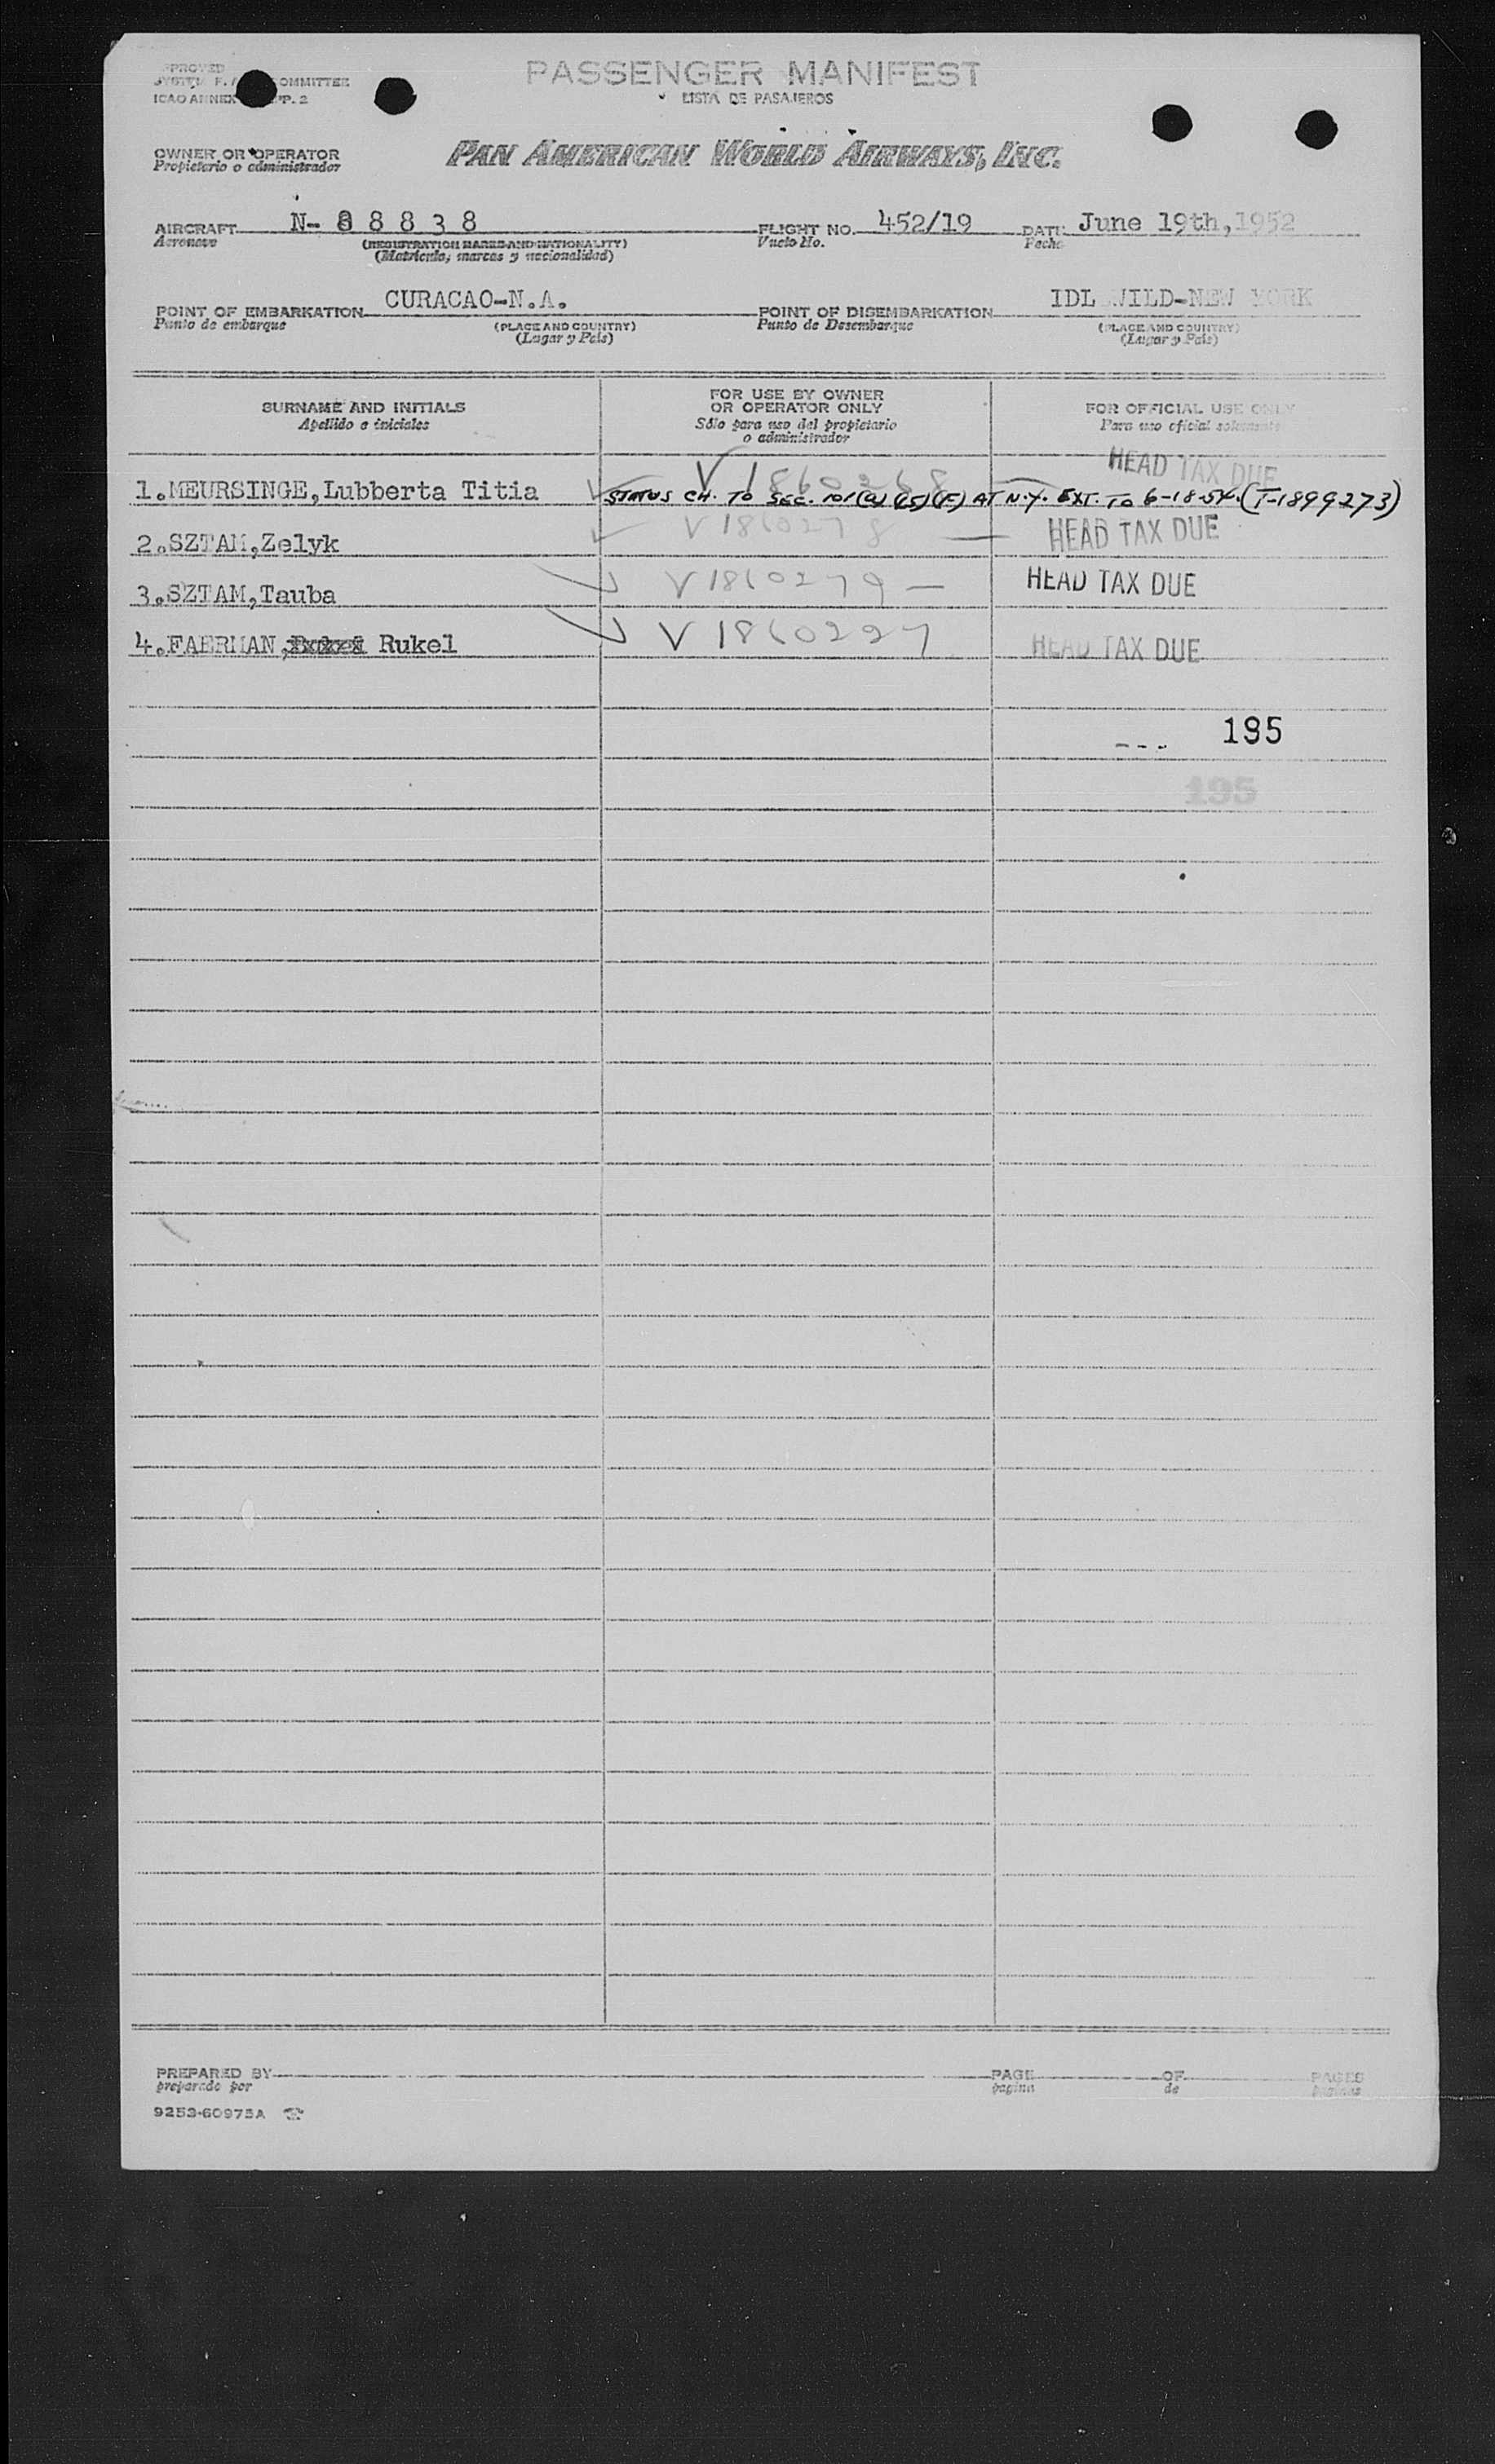 PASSENGER MANIFEST
LISTA DE PASAJEROS
ICAO ANNEX
OWNER OR OPERATOR
Propietario o administrador
PAN AMERICAN WORLD AIRWAYS, INC.
AIRCRAFT N-88838 FLIGHT NO. 452/19 DATE June 19th, 1952
Aeronave (REGISTRATION MARKS AND NATIONALITY) Vuelo No. Fecha
(Matricula, marcas y nacionalidad)
POINT OF EMBARKATION CURACAO-N.A. POINT OF DISEMBARKATION IDLEWILD-NEW YORK
Punto de embarque (PLACE AND COUNTRY) Punto de Desembarque (PLACE AND COUNTRY)
(Lugar y País) (Lugar y País)
SURNAME AND INITIALS FOR USE BY OWNER OR OPERATOR ONLY FOR OFFICIAL USE ONLY
Apellido e iniciales Sólo para uso del propietario o administrador Para uso oficial solamente
V 1860268 HEAD TAX DUE
1.MEURSINGE,Lubberta Titia STATUS CH. TO SEC. 101(a)(15)(F) AT N.Y. EXT. TO 6-18-54. (T-1899273)
2.SZTAM,Zelyk V 1860278 HEAD TAX DUE
3.SZTAM,Tauba V 1860279 HEAD TAX DUE
4.FAERMAN, Rukel V 1860227 HEAD TAX DUE
195
195
PREPARED BY PAGE OF PAGES
preparado por pagina de paginas
9253-60975A